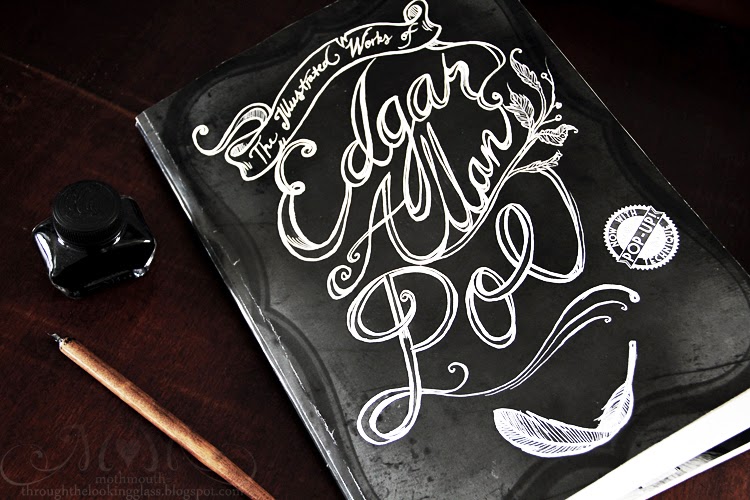 The Illustrated Works of
Edgar
Allan
Poe
NOW WITH
POP-UP!
mothmouth
throughthelookingglass.blogspot.com